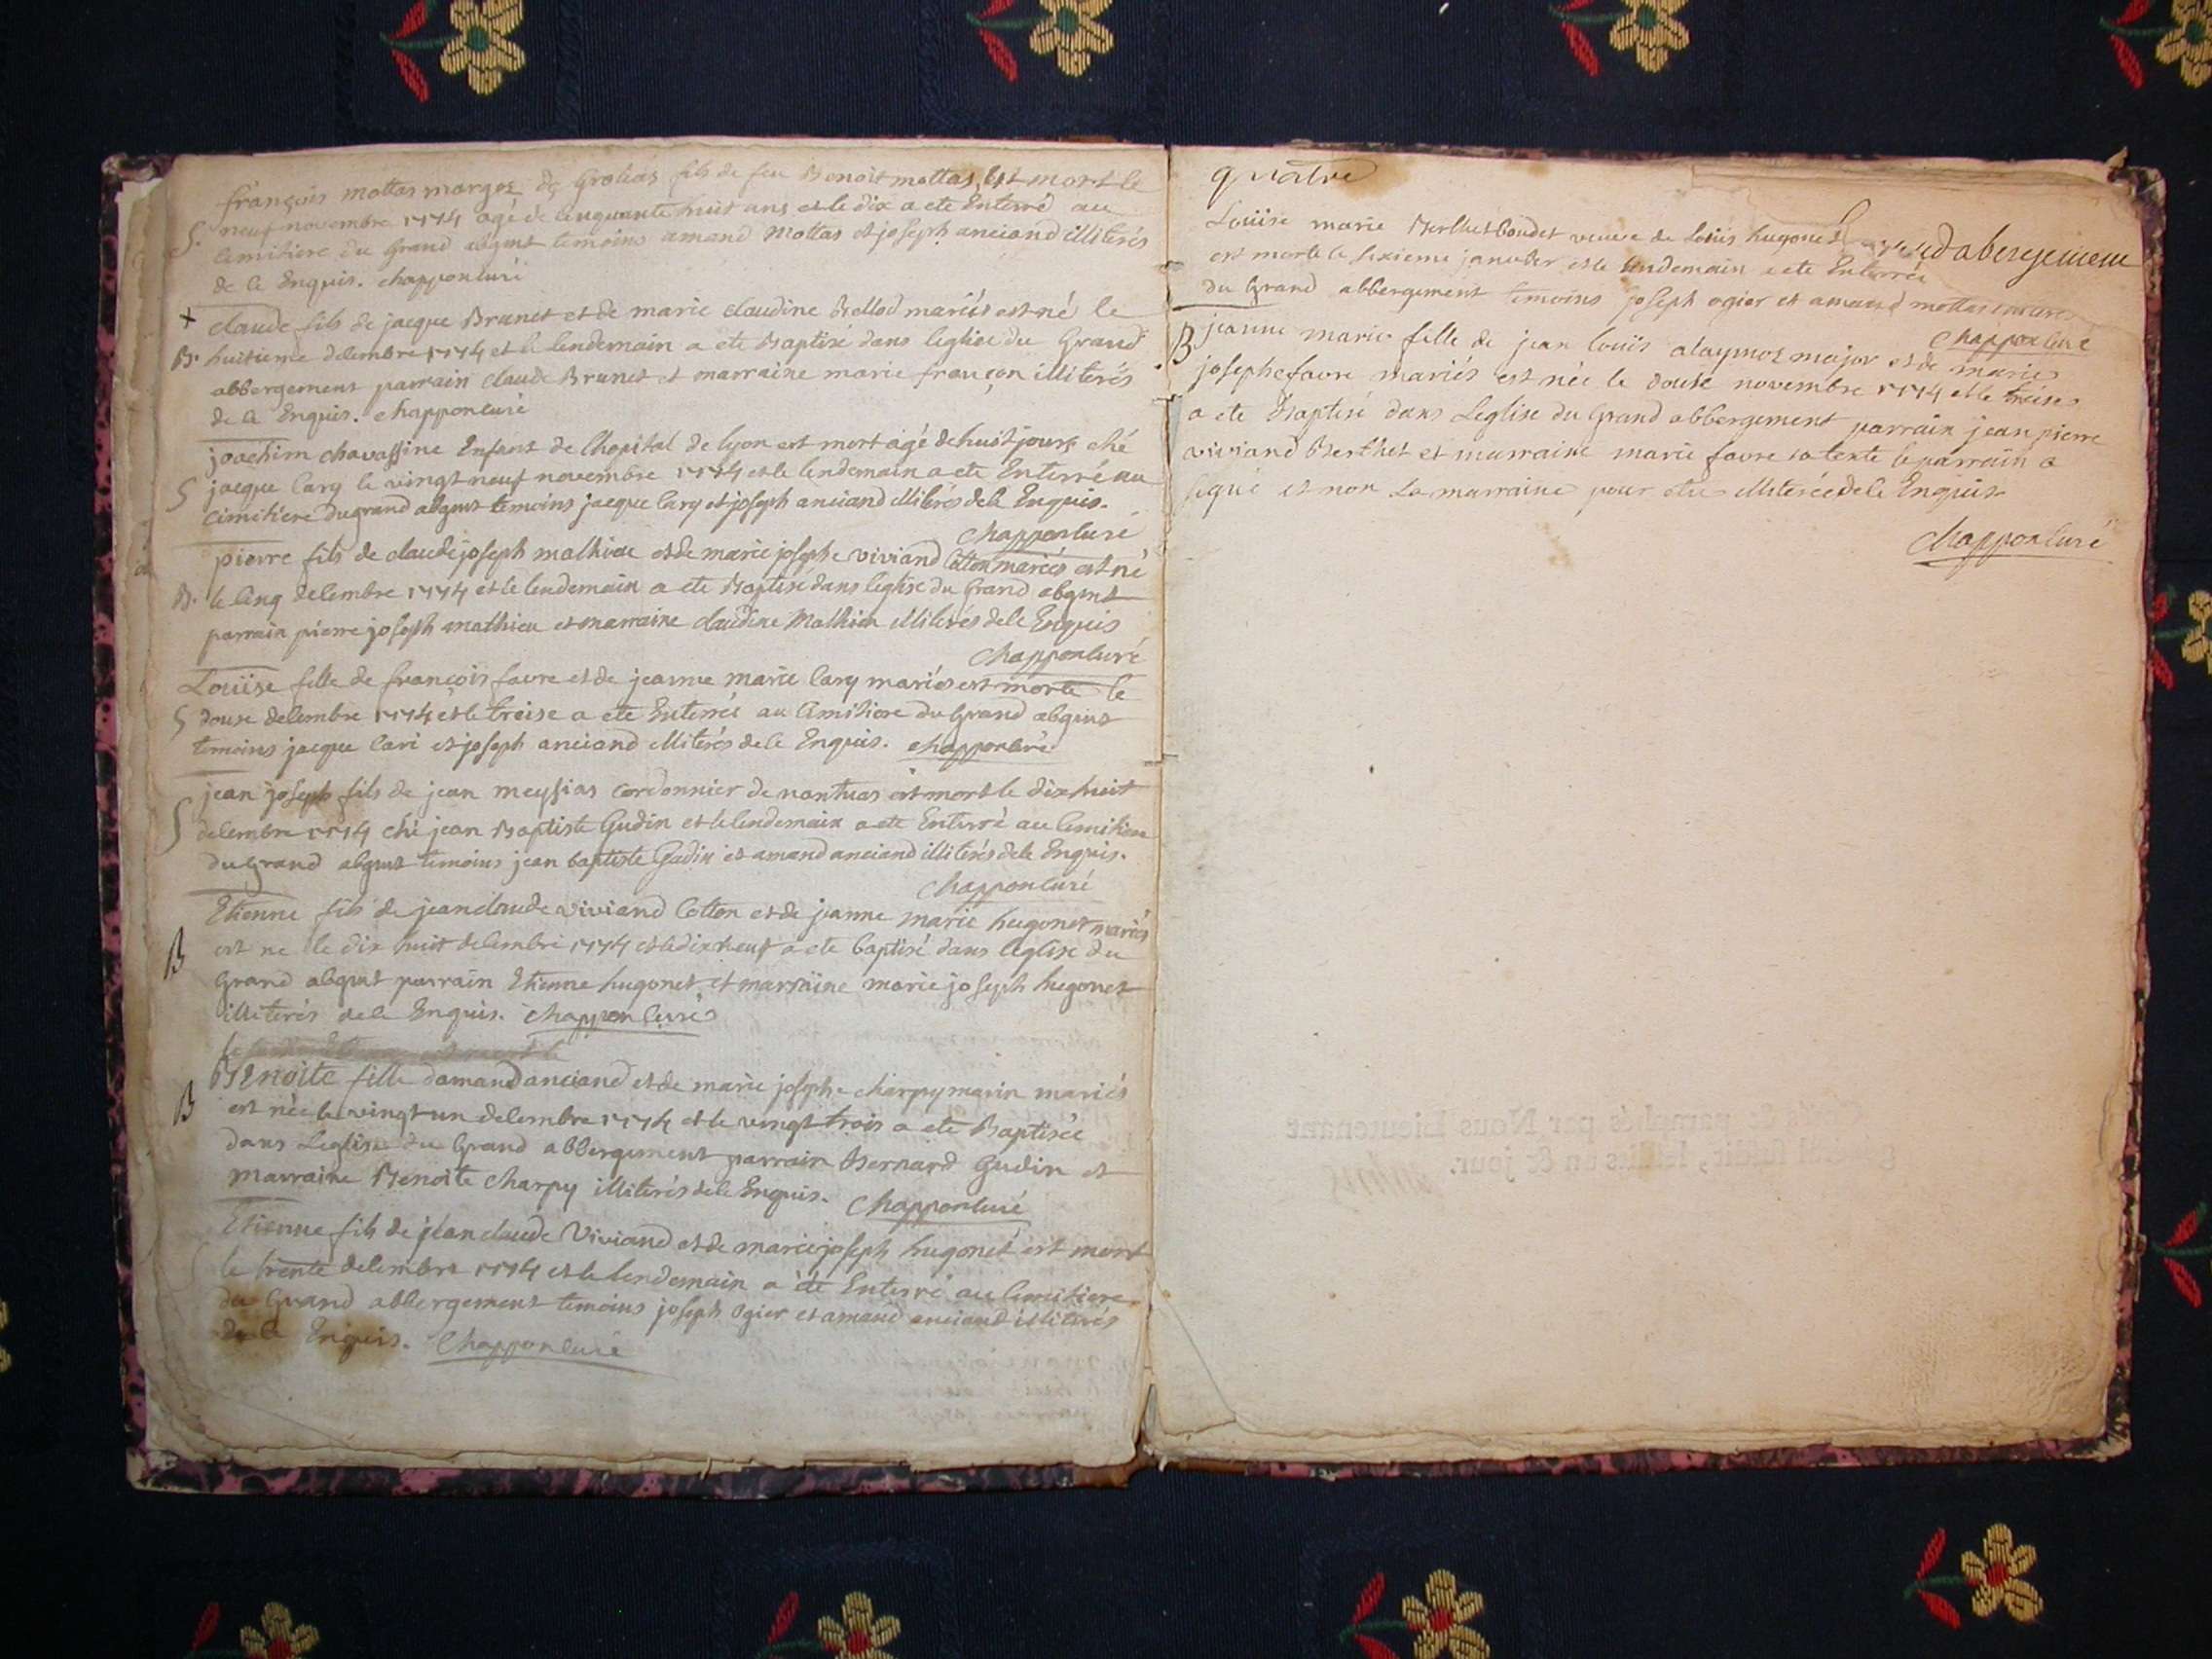 françois mottas margoz de Grolias fils de feu Benoit mottas, est mort le
S. neuf novembre 1774 agé de cinquante huit ans et le dix a ete Enterré au
cemitiere du Grand abgmt temoins amand Mottas et joseph anciand illiterés
de ce Enquis. chappon curé
+ claude fils de jacque Brunet et de marie claudine Bellod mariés est né le
B. huitieme decembre 1774 et le lendemain a ete Baptisé dans leglise du Grand
abbergement parrain claude Brunet et marraine marie françon illiterés
de ce Enquis. chappon curé
joachim chavassine Enfant de lhopital de lyon est mort agé de huit jours ché
S jacque lary le vingt neuf novembre 1774 et le lendemain a ete Enterré au
cimitiere du grand abgmt temoins jacque lary et joseph anciand illiterés de ce Enquis.
chappon curé
pierre fils de claude joseph mathieu et de marie josephe viviand Cotton mariés est né
B. le cinq decembre 1774 et le lendemain a ete Baptisé dans leglise du Grand abgmt
parrain pierre joseph mathieu et marraine claudine Mathieu illiterés de ce Enquis
chappon curé
Louise fille de françois favre et de jeanne marie lary mariés est morte le
S douse decembre 1774 et le treise a ete Enterrée au Cimitiere du Grand abgmt
temoins jacque lari et joseph anciand illiterés de ce Enquis. chappon curé
jean joseph fils de jean meysias cordonnier de nantuas est mort le dix huit
S decembre 1774 ché jean Baptiste Gudin et le lendemain a ete Enterré au Cemitiere
du Grand abgmt temoins jean baptiste Gudin et amand anciand illiterés de ce Enquis.
chappon curé
Etienne fils de jean claude viviand Cotton et de jeanne marie hugonet mariés
B est né le dix huit decembre 1774 et le dix neuf a ete baptisé dans leglise du
Grand abgmt parrain Etienne hugonet et marraine marie joseph hugonet
illiterés de ce Enquis. chappon curé
Benoite fille damand anciand et de marie josephe charpy marin mariés
B est née le vingt un decembre 1774 et le vingt trois a ete Baptisée
dans Leglise du Grand abbergement parrain Bernard Gudin et
marraine Benoite charpy illiterés de ce Enquis. chappon curé
Etienne fils de jean claude Viviand et de marie joseph hugonet est mort
le trente decembre 1774 et le lendemain a été Enterré au Cemitiere
du Grand abbergement temoins joseph ogier et amand anciand illiterés
de ce Enquis. Chappon curé
quatre
Louise marie Berthet boudet veuve de Loüis hugonet
est morte le sixieme janvier et le lendemain a ete Enterrée
du Grand abbergement temoins joseph ogier et amand mottas
chappon curé
B jeanne marie fille de jean louis alaymoz major et de marie
josephe favre mariés est née le douse novembre 1774 et le treise
a ete Baptisé dans Leglise du Grand abbergement parrain jean pierre
viviand Berthet et marraine marie favre le parrain a
signé et non La marraine pour etre illiterée de ce Enquise
chappon curé